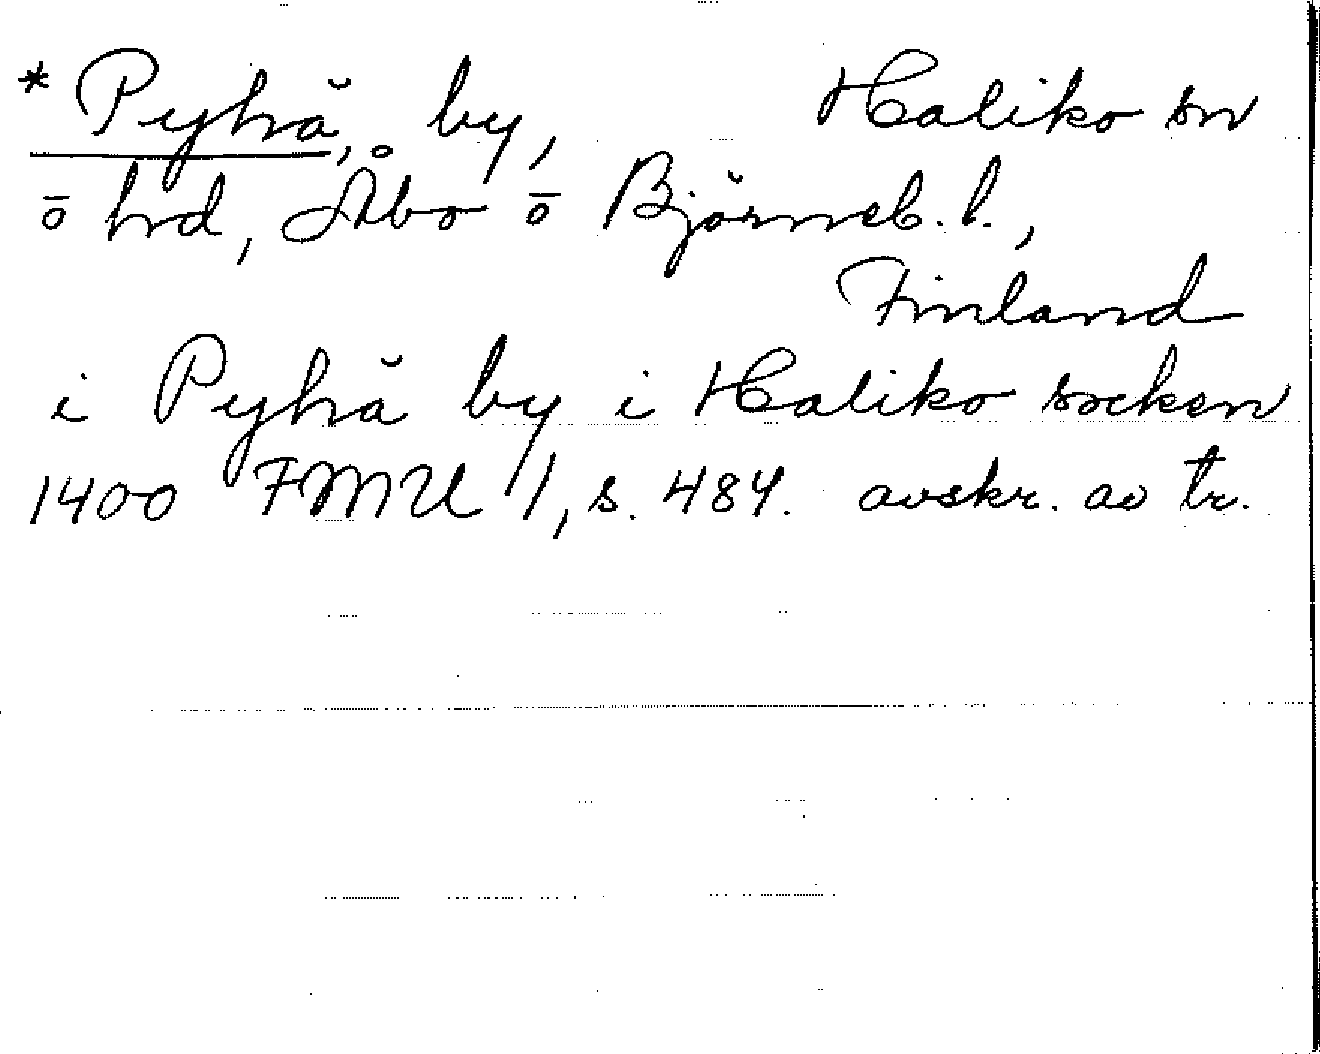 * Pyhä, by, Haliko sn
o hd, Åbo o Björneb. l.,
Finland
i Pyhä by i Haliko socken
1400 FMU 1, s. 484. avskr. av tr.